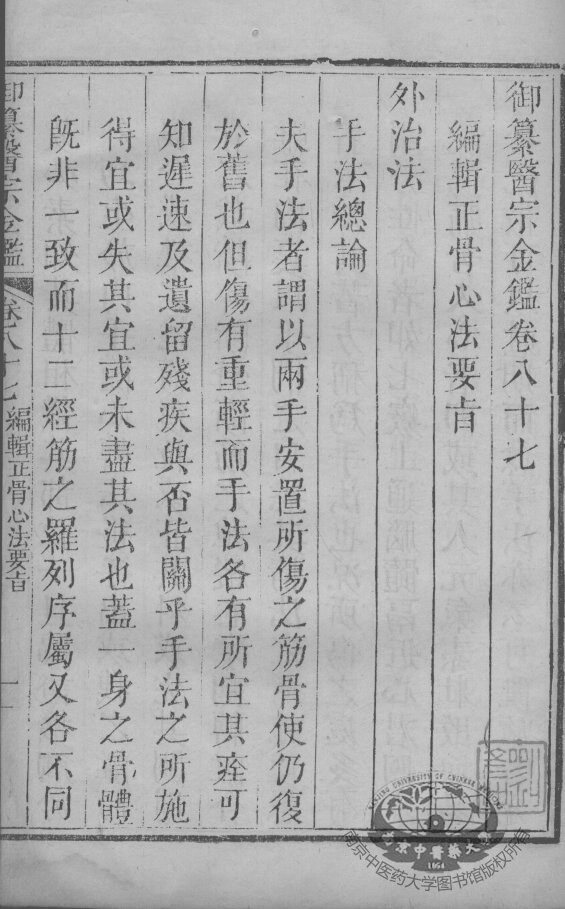 御纂醫宗金鑑卷八十七
編輯正骨心法要㫖
外治法
手法總論
夫手法者謂以兩手安置所傷之筋骨使仍復
於舊也但傷有重輕而手法各有所宜其痊可
知遲速及遺留殘疾與否皆關乎手法之所施
得宜或失其宜或未盡其法也蓋一身之骨體
既非一致而十二經筋之羅列序屬又各不同
御纂醫宗金鑑 卷八十七 編輯正骨心法要㫖 一
NANJING UNIVERSITY OF CHINESE MEDICINE
南京中醫藥大學
1954
南京中医药大学图书馆版权所有